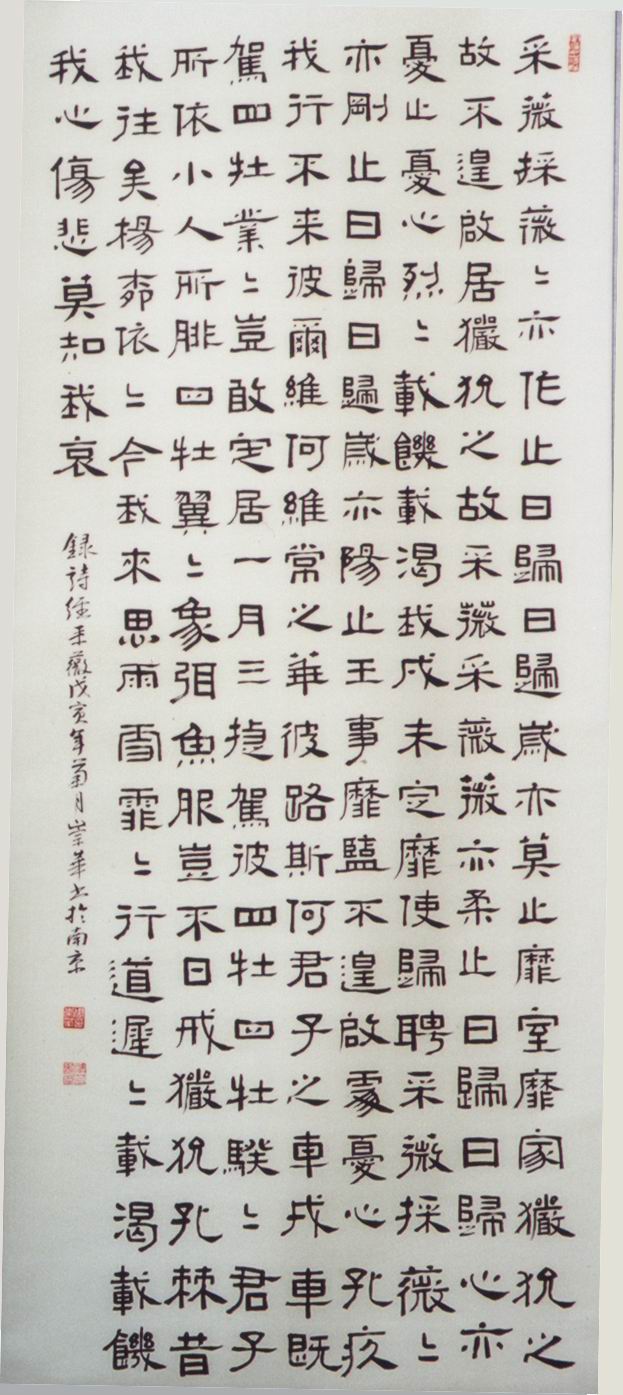 采薇採薇〻亦作止曰歸曰歸歲亦莫止靡室靡家玁狁之
故不遑啟居玁狁之故采薇采薇薇亦柔止曰歸曰歸心亦
憂止憂心烈〻載饑載渴我戍未定靡使歸聘采薇採薇〻
亦剛止曰歸曰歸歲亦陽止王事靡盬不遑啟處憂心孔疚
我行不来彼爾維何維常之華彼路斯何君子之車戎車既
駕四牡業〻豈敢定居一月三捷駕彼四牡四牡騤〻君子
所依小人所腓四牡翼〻象弭魚服豈不日戒玁狁孔棘昔
我往矣楊柳依〻今我來思雨雪霏〻行道遲〻載渴載饑
我心傷悲莫知我哀
録詩經采薇戊寅年菊月崇華书於南京